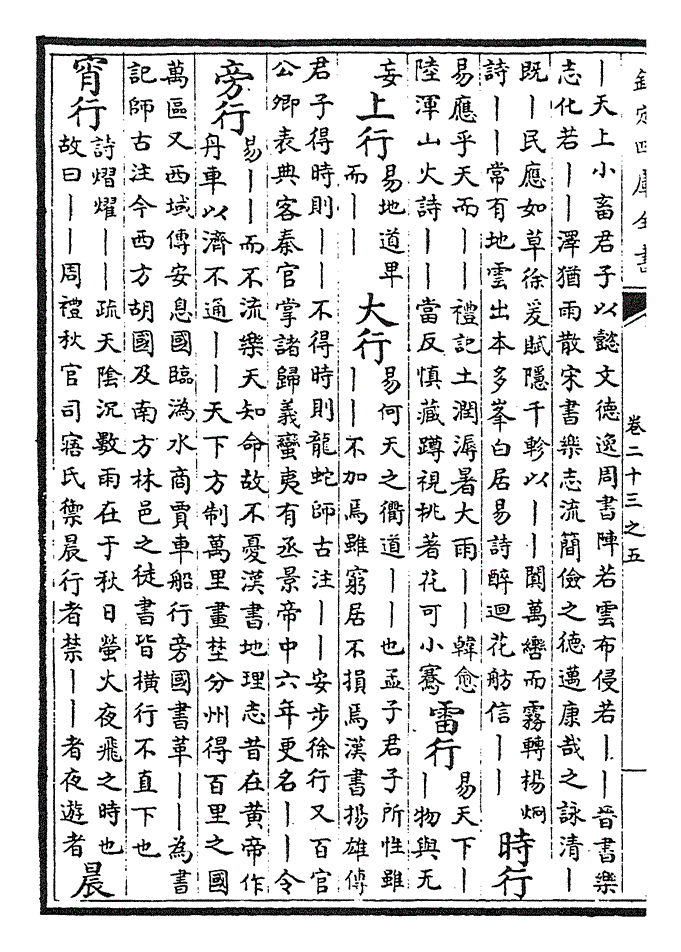 欽定四庫全書
卷二十三之五
一
｜天上小畜君子以懿文德逸周書陣若雲布侵若｜｜晉書樂
志化若｜｜澤猶雨散宋書樂志流簡儉之德邁康哉之詠清｜
既｜民應如草徐爰賦隱千軫以｜｜闐萬轡而霧轉楊炯
詩｜｜常有地雲出本多峯白居易詩醉迴花舫信｜｜｜
時行
易應乎天而｜｜禮記土潤溽暑大雨｜｜韓愈
陸渾山火詩｜｜當反慎藏蹲視桃著花可小騫
雷行
易天下｜
｜物與无
妄
上行
易地道卑
而｜｜
大行
易何天之衢道｜｜也孟子君子所性雖
｜｜不加焉雖窮居不損焉漢書揚雄傳
君子得時則｜｜不得時則龍蛇師古注｜｜安步徐行又百官
公卿表典客秦官掌諸歸義蠻夷有丞景帝中六年更名｜｜令
旁行
易｜｜而不流樂天知命故不憂漢書地理志昔在黄帝作
舟車以濟不通｜｜天下方制萬里畫埜分州得百里之國
萬區又西域傳安息國臨溈水商賈車船行旁國書革｜｜為書
記師古注今西方胡國及南方林邑之徒書皆橫行不直下也
宵行
詩熠燿｜｜疏天陰沉數雨在于秋日螢火夜飛之時也
故曰｜｜周禮秋官司寤氏禦晨行者禁｜｜者夜遊者
晨